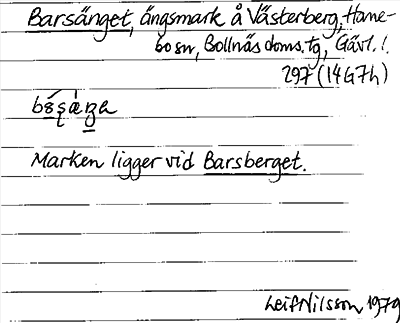 Barsänget, ängsmark å Västerberg, Hane-
bo sn, Bollnäs doms.tg, Gävl. l.
297 (14G7h)
Marken ligger vid Barsberget.
Leif Nilsson 1979